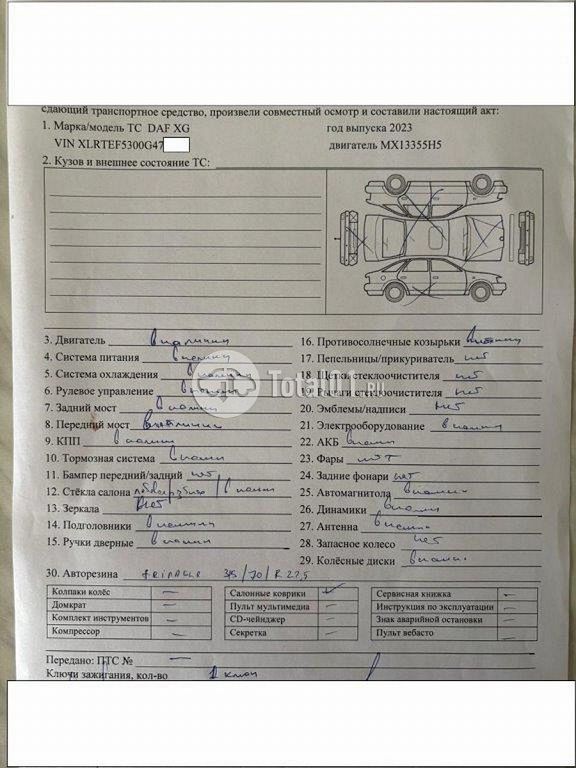 сдающий транспортное средство, произвели совместный осмотр и составили настоящий акт:
1. Марка/модель ТС DAF XG год выпуска 2023
VIN XLRTEF5300G47 двигатель MX13355H5
2. Кузов и внешнее состояние ТС:
3. Двигатель в наличии
4. Система питания в наличии
5. Система охлаждения в наличии
6. Рулевое управление в наличии
7. Задний мост в наличии
8. Передний мост в наличии
9. КПП в наличии
10. Тормозная система в наличии
11. Бампер передний/задний нет
12. Стёкла салона лобовое разбито / в наличии
13. Зеркала нет
14. Подголовники в наличии
15. Ручки дверные в наличии
16. Противосолнечные козырьки в наличии
17. Пепельницы/прикуриватель нет
18. Щётки стеклоочистителя нет
19. Рычаги стеклоочистителя нет
20. Эмблемы/надписи нет
21. Электрооборудование в наличии
22. АКБ в наличии
23. Фары нет
24. Задние фонари нет
25. Автомагнитола в наличии
26. Динамики в наличии
27. Антенна в наличии
28. Запасное колесо нет
29. Колёсные диски в наличии
30. Авторезина 315/70/R 22,5
Колпаки колёс – Салонные коврики ✓ Сервисная книжка –
Домкрат – Пульт мультимедиа – Инструкция по эксплуатации –
Комплект инструментов – CD-чейнджер – Знак аварийной остановки –
Компрессор – Секретка – Пульт вебасто –
Передано: ПТС № –
Ключи зажигания, кол-во 1 ключ
Total01.ru